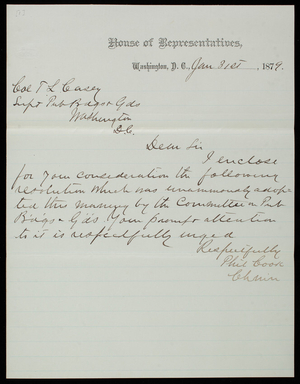 House of Representatives,
Washington, D. C., Jan 31st, 1879.
Col T L Casey
Supt Pub Bdgs & Gds
Washington
D.C.
Dear Sir
I enclose
for your consideration the following
resolution which was unanimously adop
ted this morning by the Committee on Pub
Bdigs & G'ds. Your prompt attention
to it is respectfully urged
Respectfully
Phil Cook
Chmn